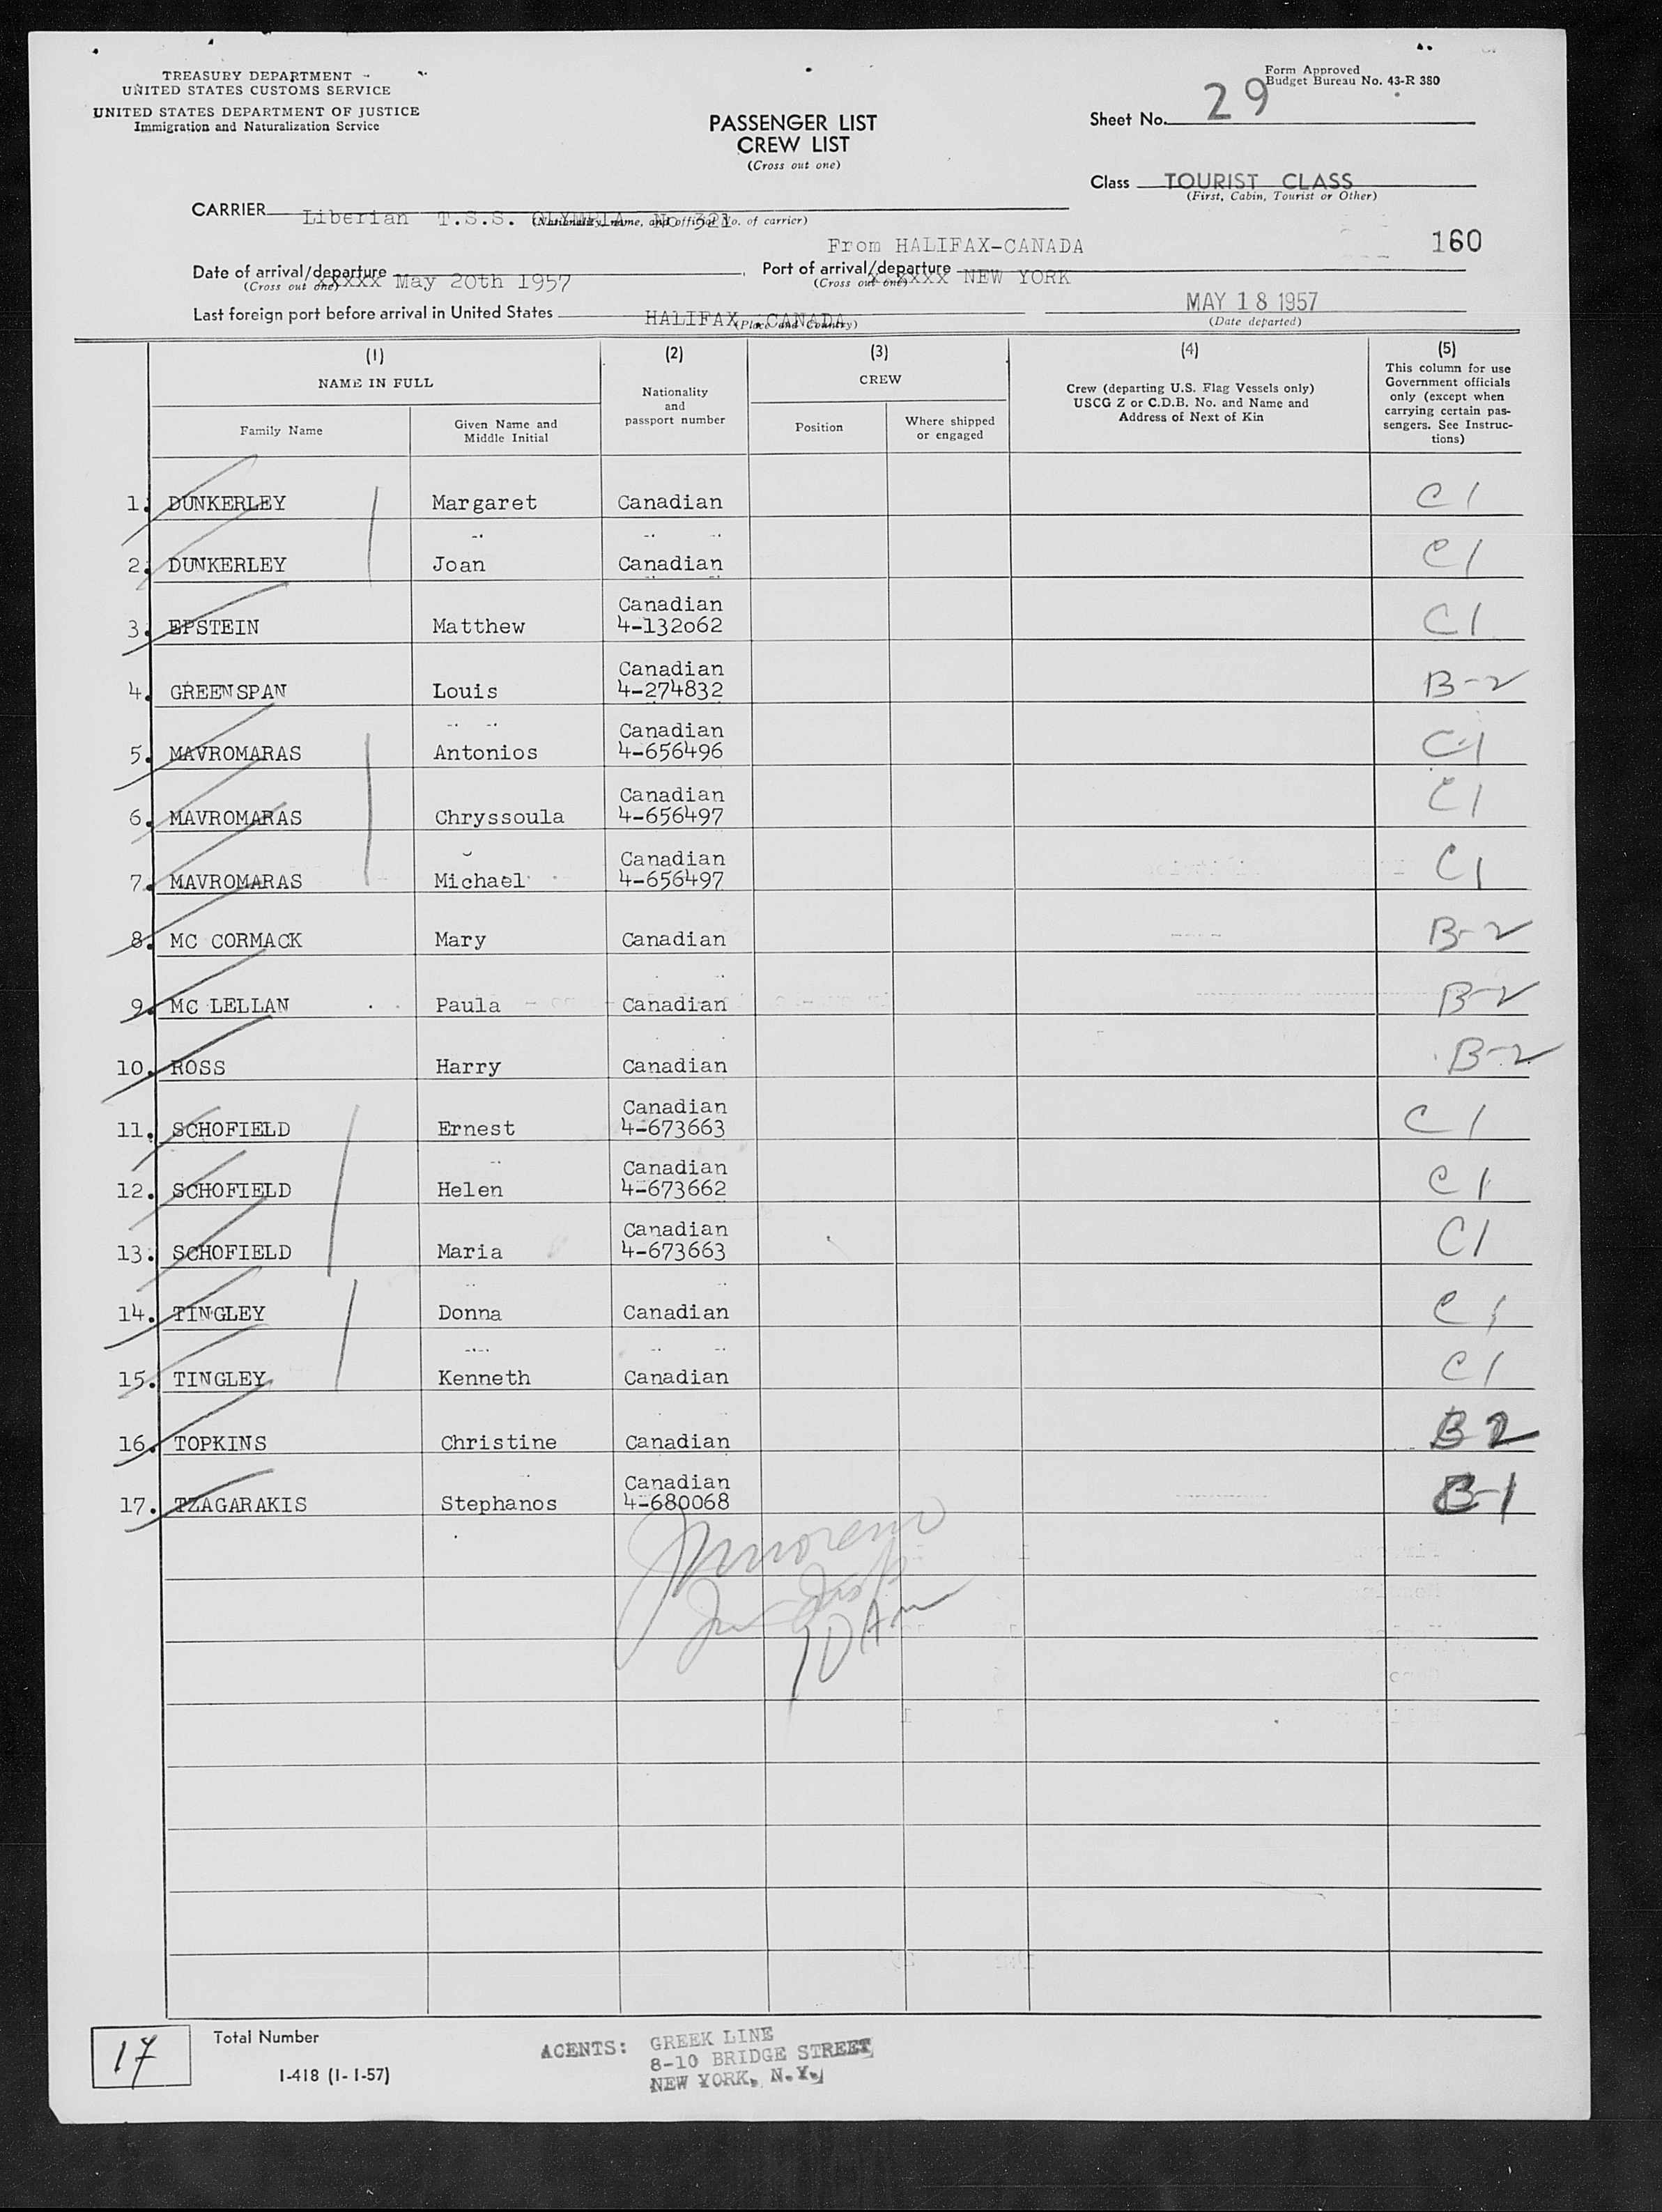 TREASURY DEPARTMENT
UNITED STATES CUSTOMS SERVICE
UNITED STATES DEPARTMENT OF JUSTICE
Immigration and Naturalization Service
PASSENGER LIST
CREW LIST
(Cross out one)
Form Approved
Budget Bureau No. 43-R 380
Sheet No. 29
Class TOURIST CLASS
(First, Cabin, Tourist or Other)
CARRIER Liberian T.S.S. OLYMPIA No 321
(Nationality, name, and official No. of carrier)
From HALIFAX-CANADA
160
Date of arrival/departure xxxxx May 20th 1957
(Cross out one)
Port of arrival/departure xxxxx NEW YORK
(Cross out one)
Last foreign port before arrival in United States HALIFAX, CANADA
(Place and Country)
MAY 18 1957
(Date departed)
(1) (2) (3) (4) (5)
NAME IN FULL
Family Name
Given Name and Middle Initial
Nationality and passport number
CREW
Position
Where shipped or engaged
Crew (departing U.S. Flag Vessels only)
USCG Z or C.D.B. No. and Name and
Address of Next of Kin
This column for use
Government officials
only (except when
carrying certain pas-
sengers. See Instruc-
tions)
1. DUNKERLEY Margaret Canadian C1
2. DUNKERLEY Joan Canadian C1
3. EPSTEIN Matthew Canadian 4-132062 C1
4. GREENSPAN Louis Canadian 4-274832 B-2
5. MAVROMARAS Antonios Canadian 4-656496 C-1
6. MAVROMARAS Chryssoula Canadian 4-656497 C1
7. MAVROMARAS Michael Canadian 4-656497 C1
8. MC CORMACK Mary Canadian B-2
9. MC LELLAN Paula Canadian B-2
10. ROSS Harry Canadian B-2
11. SCHOFIELD Ernest Canadian 4-673663 C1
12. SCHOFIELD Helen Canadian 4-673662 C1
13. SCHOFIELD Maria Canadian 4-673663 C1
14. TINGLEY Donna Canadian C1
15. TINGLEY Kenneth Canadian C1
16. TOPKINS Christine Canadian B2
17. TZAGARAKIS Stephanos Canadian 4-680068 B-1
17
Total Number
I-418 (1-1-57)
ACENTS: GREEK LINE
8-10 BRIDGE STREET
NEW YORK, N.Y.